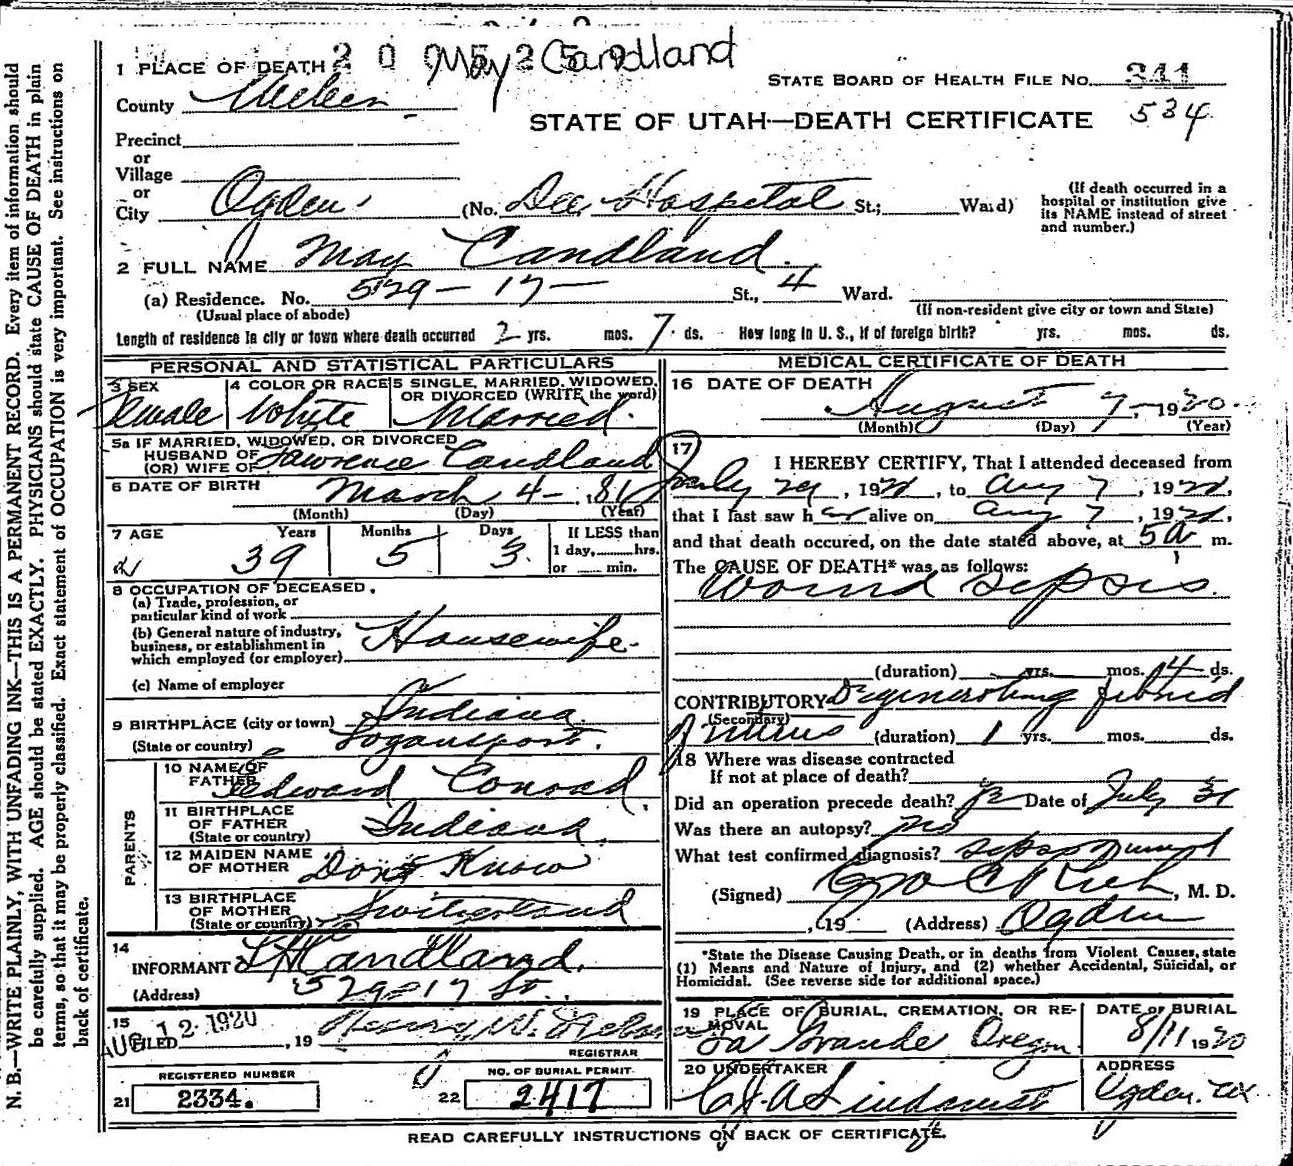 May Candland
1 PLACE OF DEATH
STATE BOARD OF HEALTH FILE No. 341
County Weber
534
STATE OF UTAH—DEATH CERTIFICATE
Precinct
or
Village
or
City Ogden (No. Dee Hospital St.; Ward)
(If death occurred in a hospital or institution give its NAME instead of street and number.)
2 FULL NAME May Candland.
(a) Residence. No. 529 - 17 - St., 4 Ward.
(Usual place of abode) (If non-resident give city or town and State)
Length of residence in city or town where death occurred 2 yrs. mos. 7 ds. How long in U. S., if of foreign birth? yrs. mos. ds.
PERSONAL AND STATISTICAL PARTICULARS
3 SEX Female
4 COLOR OR RACE White
5 SINGLE, MARRIED, WIDOWED, OR DIVORCED (WRITE the word) Married.
5a IF MARRIED, WIDOWED, OR DIVORCED
HUSBAND OF
(OR) WIFE OF Lawrence Candland
6 DATE OF BIRTH March 4 - 1881
(Month) (Day) (Year)
7 AGE Years Months Days If LESS than
39 5 3 1 day, hrs.
or min.
8 OCCUPATION OF DECEASED.
(a) Trade, profession, or
particular kind of work
(b) General nature of industry,
business, or establishment in
which employed (or employer) Housewife.
(c) Name of employer
9 BIRTHPLACE (city or town) Indiana
(State or country) Logansport.
PARENTS
10 NAME OF
FATHER Edward Conrad.
11 BIRTHPLACE
OF FATHER
(State or country) Indiana.
12 MAIDEN NAME
OF MOTHER Dont Know
13 BIRTHPLACE
OF MOTHER
(State or country) Switzerland
14
INFORMANT L H Candland.
(Address) 529-17 St.
15
FILED AUG 12 1920, 19 Henry W.
REGISTRAR
REGISTERED NUMBER
21 2334.
NO. OF BURIAL PERMIT
22 2417
MEDICAL CERTIFICATE OF DEATH
16 DATE OF DEATH
August 7, 1920
(Month) (Day) (Year)
17
I HEREBY CERTIFY, That I attended deceased from
July 29, 192, to Aug 7, 192,
that I last saw her alive on Aug 7, 192,
and that death occured, on the date stated above, at 5 a m.
The CAUSE OF DEATH* was as follows:
Wound sepsis.
(duration) yrs. mos. 4 ds.
CONTRIBUTORY Degenerating fibroid
(Secondary)
of uterus (duration) 1 yrs. mos. ds.
18 Where was disease contracted
If not at place of death?
Did an operation precede death? Date of July 31
Was there an autopsy? no
What test confirmed diagnosis?
(Signed) Geo C Rich, M. D.
, 19 (Address) Ogden
*State the Disease Causing Death, or in deaths from Violent Causes, state
(1) Means and Nature of Injury, and (2) whether Accidental, Suicidal, or
Homicidal. (See reverse side for additional space.)
19 PLACE OF BURIAL, CREMATION, OR REMOVAL
La Grande Oregon.
DATE OF BURIAL
8/11 1920
20 UNDERTAKER
Lindquist
ADDRESS
Ogden.
READ CAREFULLY INSTRUCTIONS ON BACK OF CERTIFICATE.
N. B.—WRITE PLAINLY, WITH UNFADING INK—THIS IS A PERMANENT RECORD. Every item of information should
be carefully supplied. AGE should be stated EXACTLY. PHYSICIANS should state CAUSE OF DEATH in plain
terms, so that it may be properly classified. Exact statement of OCCUPATION is very important. See instructions on
back of certificate.